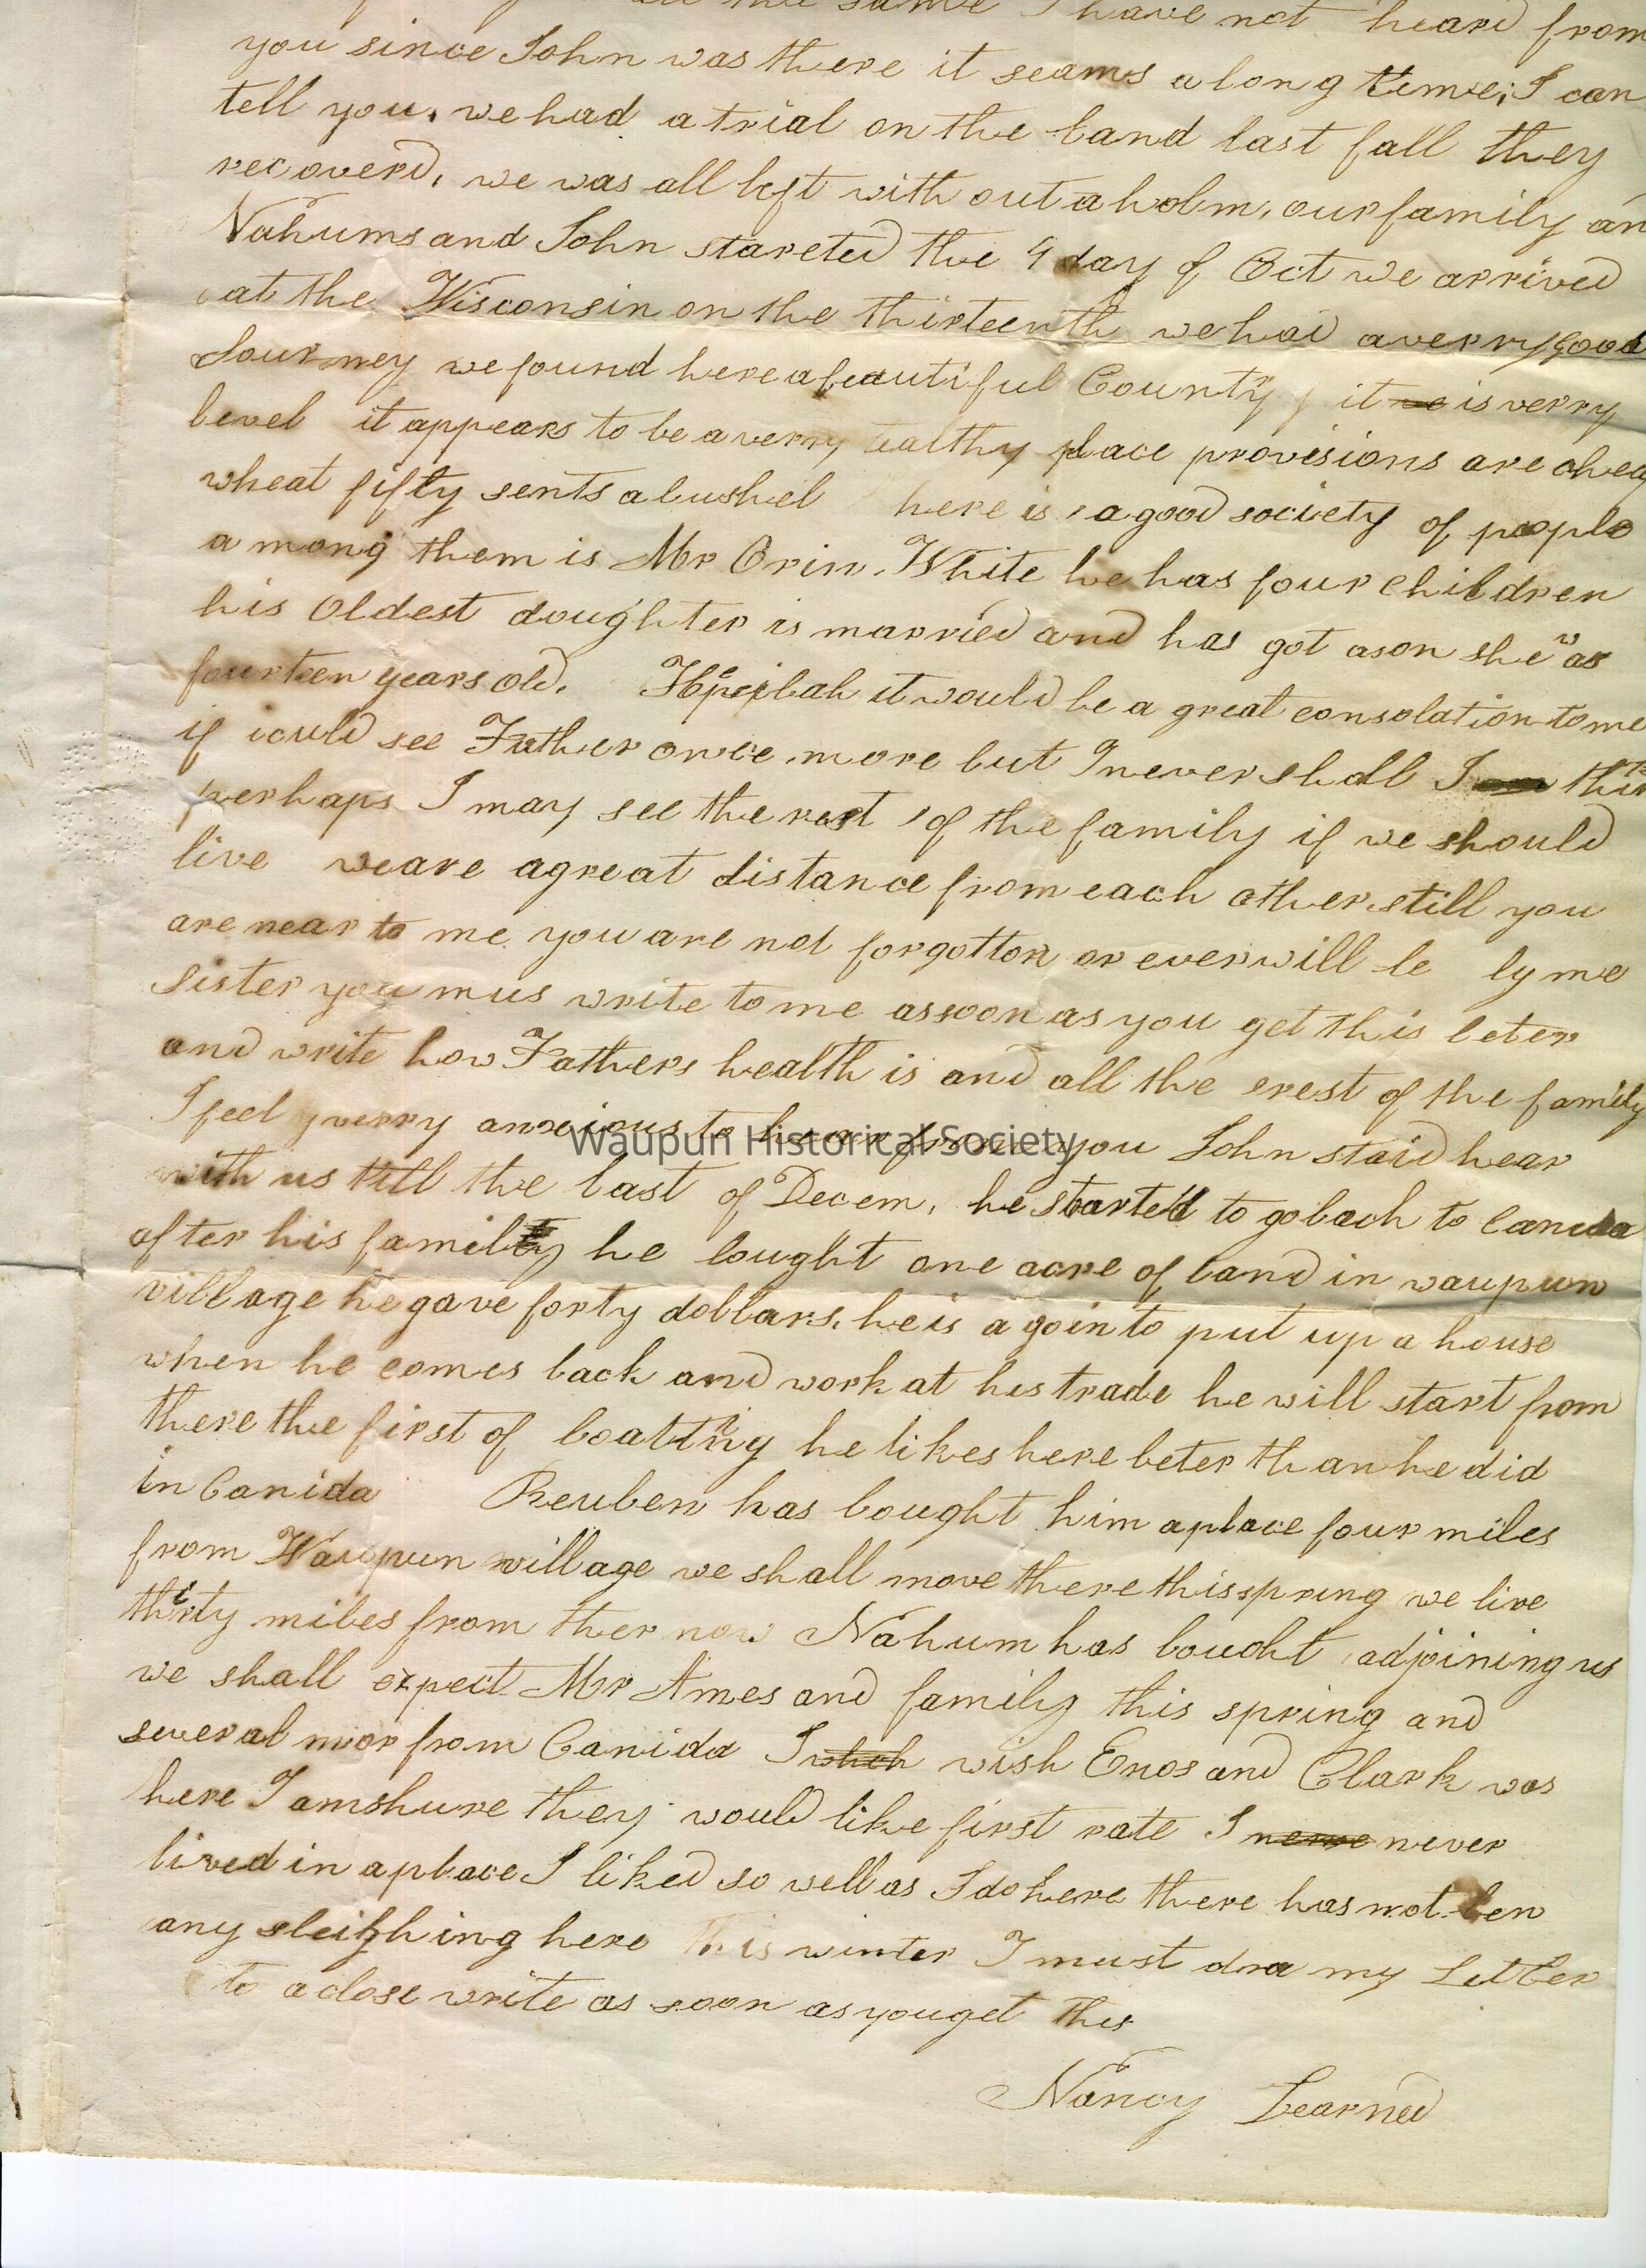 all the same I have not heard from
you since John was there it seams a long time; I can
tell you. we had a trial on the land last fall they
recoverd, we was all left with out a holm, our family an
Nahums and John stareted the 4 day of Oct we arrived
at the Wisconsin on the thirteenth we had a verry good
Journey we found here a beautiful Country it is verry
level it appears to be a verry healthy place provisions are cheap
wheat fifty sents a bushel here is a good society of people
a mong them is Mr Orin. White he has four children
his oldest doughter is married and has got a son she was
fourteen years old. it would be a great consolation to me
if i could see Father once more but I never shall I think
perhaps I may see the rest of the family if we should
live we are a great distance from each other still you
are near to me you are not forgotton or ever will be by me
Sister you mus write to me as soon as you get this leter
and write how Fathers health is and all the rest of the family
I feel verry anxious to hear from you John staid hear
with us till the last of Decem, he started to go back to Canida
after his family he bought one acre of land in waupun
village he gave forty dollars, he is a goin to put up a house
when he comes back and work at his trade he will start from
there the first of boatting he likes here beter than he did
in Canida Reuben has bought him a place four miles
from Waupun village we shall move there this spring we live
thirty miles from ther now Nahum has bought adjoining us
we shall expect Mr Ames and family this spring and
several mor from Canida I which wish Enos and Clark was
here I am shure they would like first rate I neve never
lived in a place I liked so well as I do here there has not ben
any sleighing here this winter I must dra my Letter
to a close write as soon as you get this
Nancy Learned
Waupun Historical Society